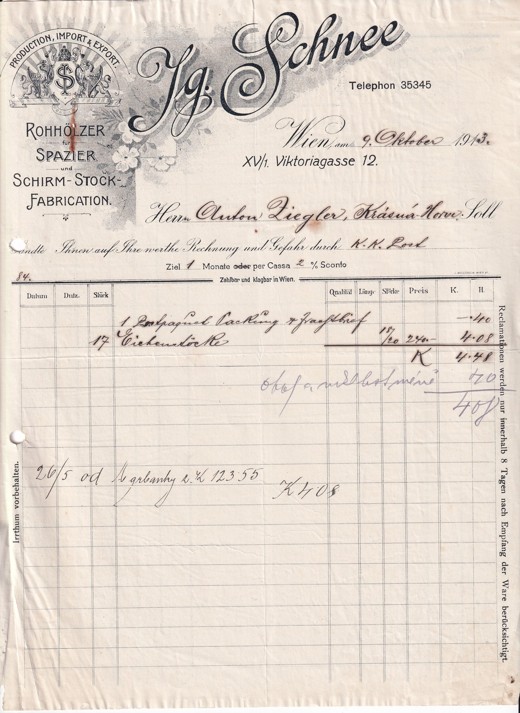 PRODUCTION, IMPORT & EXPORT.
Jg. Schnee
Telephon 35345
ROHHÖLZER
für
SPAZIER
und
SCHIRM-STOCK-
FABRICATION.
Wien, am 9. Oktober 1913.
XV/1. Viktoriagasse 12.
Herrn Anton Ziegler, Krásná-Hora, Soll
sandte Ihnen auf Ihre werthe Rechnung und Gefahr durch K. K. Post
Ziel 1 Monate oder per Cassa 2 % Sconto
84. Zahlbar und klagbar in Wien.
Datum Dutz. Stück Qualität Länge Stärke Preis K. H.
1 Postpaquet Packung & Frachtbrief -.40
17 Eichenstöcke 18/20 240.- 4.08
K 4.48
40
408
26/5 od K 123.55
K 408
Irrthum vorbehalten.
Reclamationen werden nur innerhalb 8 Tagen nach Empfang der Ware berücksichtigt.